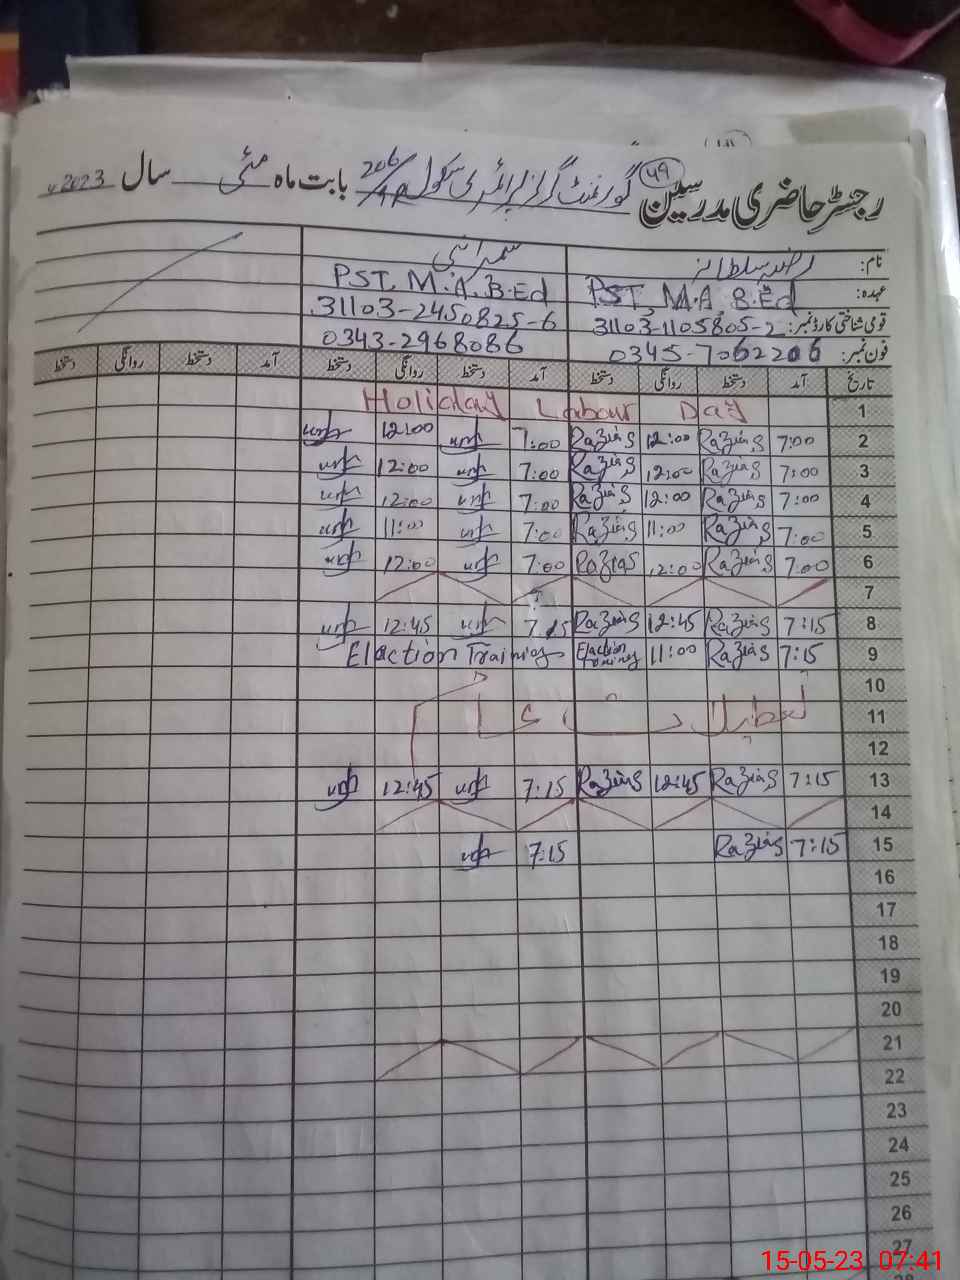 رجسٹر حاضری مدرسین 49 گورنمنٹ گرلز پرائمری سکول 206/ بابت ماہ مئی سال 2023ء
نام: رضیہ سلطانہ
عہدہ: PST, M.A, B.Ed PST, M.A, B.Ed
قومی شناختی کارڈ نمبر: 31103-1105805-2 31103-2450825-6
فون نمبر: 0345-7062206 0343-2968086
تاریخ آمد دستخط روانگی دستخط آمد دستخط روانگی دستخط آمد دستخط روانگی دستخط
1 Holiday Labour Day
2 7:00 Razia S 12:00 Razia S 7:00 12:00
3 7:00 Razia S 12:00 Razia S 7:00 12:00
4 7:00 Razia S 12:00 Razia S 7:00 12:00
5 7:00 Razia S 11:00 Razia S 7:00 11:00
6 7:00 Razia S 12:00 Razia S 7:00 12:00
7
8 7:15 Razia S 12:45 Razia S 7:15 12:45
9 7:15 Razia S 11:00 Elaction Training Elaction Training
10
11
12
13 7:15 Razia S 12:45 Razia S 7:15 12:45
14
15 7:15 Razia S 7:15
16
17
18
19
20
21
22
23
24
25
26
27
15-05-23 07:41